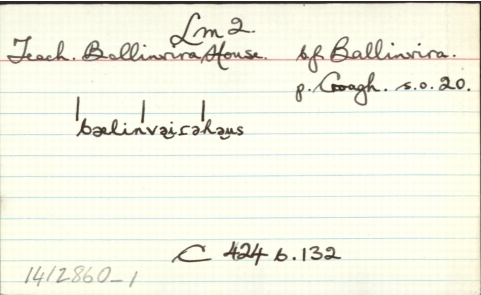 Lm 2.
Teach. Ballinvira House. bf Ballinvira.
p. Croagh. s.o. 20.
ˈbælinˈvəi̯rəˈhəu̯s
C 424 b. 132
1412860_1